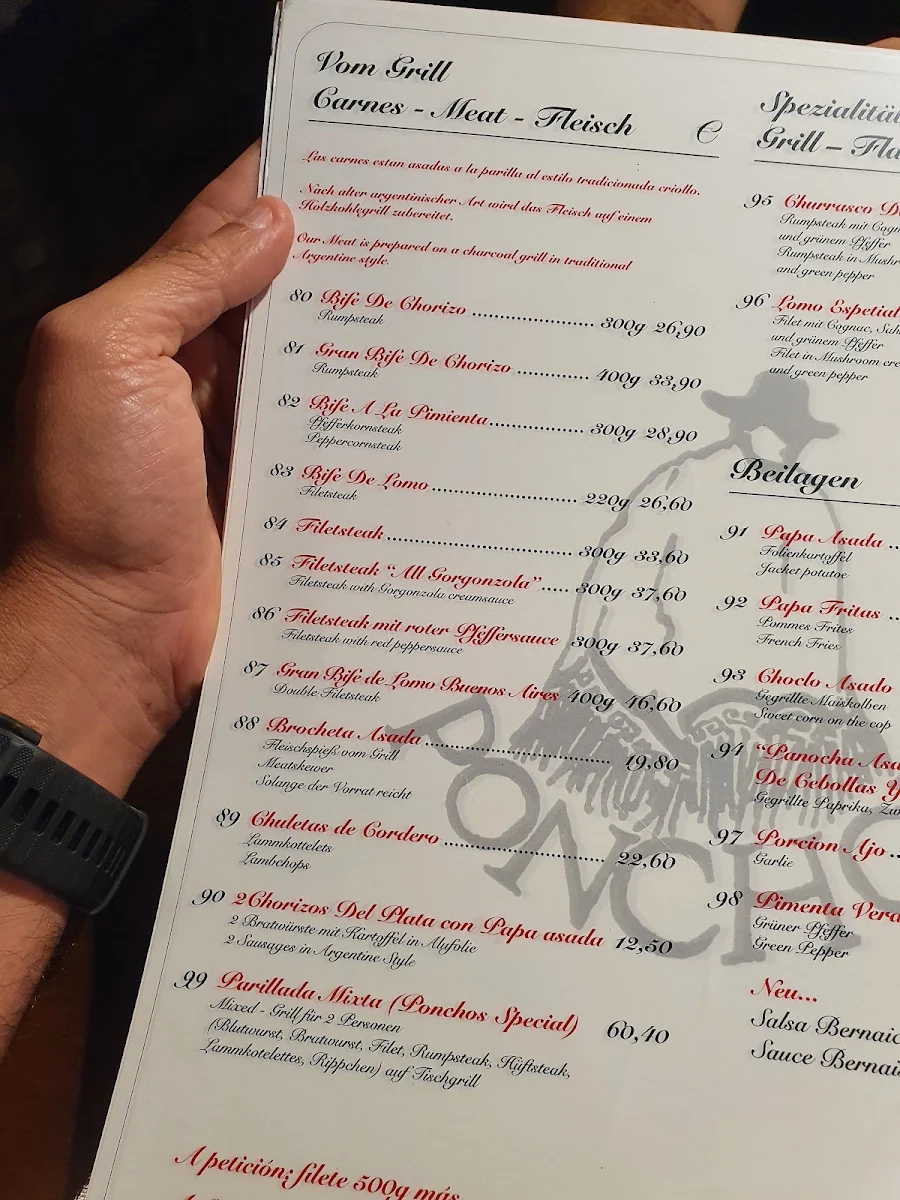 Vom Grill
Carnes - Meat - Fleisch €
Las carnes estan asadas a la parilla al estilo tradicionada criollo.
Nach alter argentinischer Art wird das Fleisch auf einem
Holzkohlegrill zubereitet.
Our Meat is prepared on a charcoal grill in traditional
Argentine style.
80 Bife De Chorizo ........................ 300g 26,90
Rumpsteak
81 Gran Bife De Chorizo .............. 400g 33,90
Rumpsteak
82 Bife A La Pimienta................... 300g 28,90
Pfefferkornsteak
Peppercornsteak
83 Bife De Lomo ............................. 220g 26,60
Filetsteak
84 Filetsteak ..................................... 300g 33,60
85 Filetsteak “All Gorgonzola”..... 300g 37,60
Filetsteak with Gorgonzola creamsauce
86 Filetsteak mit roter Pfeffersauce 300g 37,60
Filetsteak with red peppersauce
87 Gran Bife de Lomo Buenos Aires 400g 46,60
Double Filetsteak
88 Brocheta Asada ..................................... 19,80
Fleischspieß vom Grill
Meatskewer
Solange der Vorrat reicht
89 Chuletas de Cordero ................................ 22,60
Lammkottelets
Lambchops
90 2Chorizos Del Plata con Papa asada 12,50
2 Bratwürste mit Kartoffel in Alufolie
2 Sausages in Argentine Style
99 Parillada Mixta (Ponchos Special) 60,40
Mixed - Grill für 2 Personen
(Blutwurst, Bratwurst, Filet, Rumpsteak, Hüftsteak,
Lammkotelettes, Rippchen) auf Tischgrill
A petición; filete 500g más
Spezialität
Grill –
95 Churrasco
Rumpsteak mit
und grünem Pfeffer
Rumpsteak in
and green pepper
96 Lomo Espetial
Filet mit Cognac,
und grünem Pfeffer
Filet in Mushroom
and green pepper
Beilagen
91 Papa Asada ..
Folienkartoffel
Jacket potatoe
92 Papa Fritas ..
Pommes Frites
French Fries
93 Choclo Asado
Gegrillte Maiskolben
Sweet corn on the cop
94 “Panocha
De Cebollas Y
Gegrillte Paprika,
97 Porcion Ajo ..
Garlic
98 Pimenta
Grüner Pfeffer
Green Pepper
Neu...
Salsa
Sauce
PONCHO